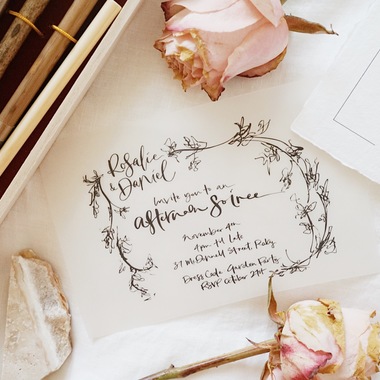 Rosalie
& Daniel
invite you to an
afternoon Soiree
november 9th
4pm til late
87 McDonnell Street, Raby
Dress Code Garden Party
RSVP October 21st